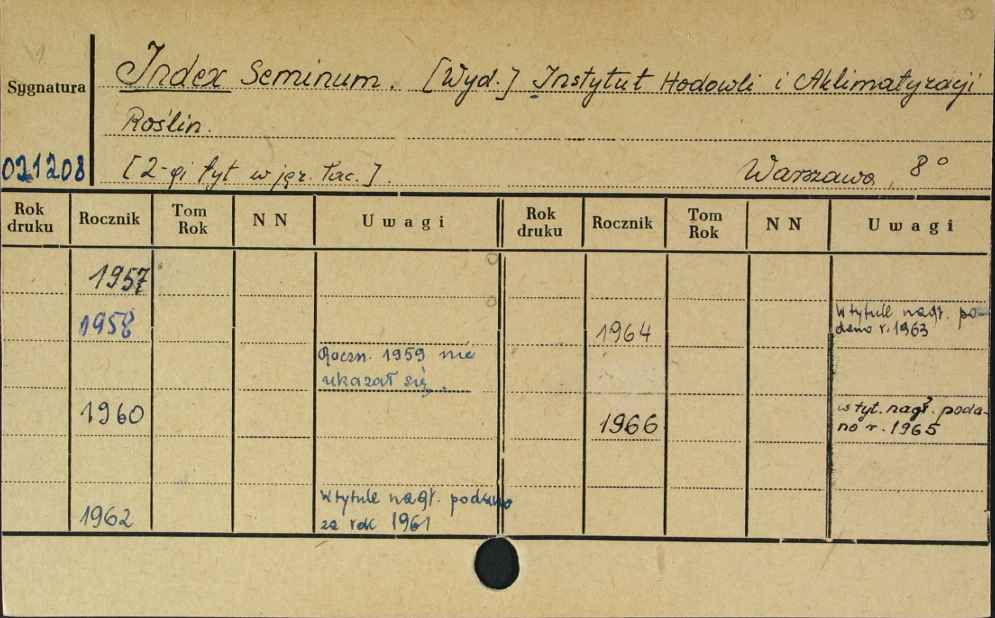 Sygnatura
Index Seminum. [Wyd.] Instytut Hodowli i Aklimatyzacji
Roślin.
021208
[2-gi tyt w jęz. łac.].
Warszawa, 8°
Rok druku
Rocznik
Tom Rok
N N
Uwagi
Rok druku
Rocznik
Tom Rok
N N
Uwagi
1957
1958
Roczn. 1959 nie
ukazał się.
1960
1962
W tytule nagł. podano
za rok 1961
1964
W tytule nagł. po-
dano r. 1963
1966
w tyt. nagł. poda-
no r. 1965